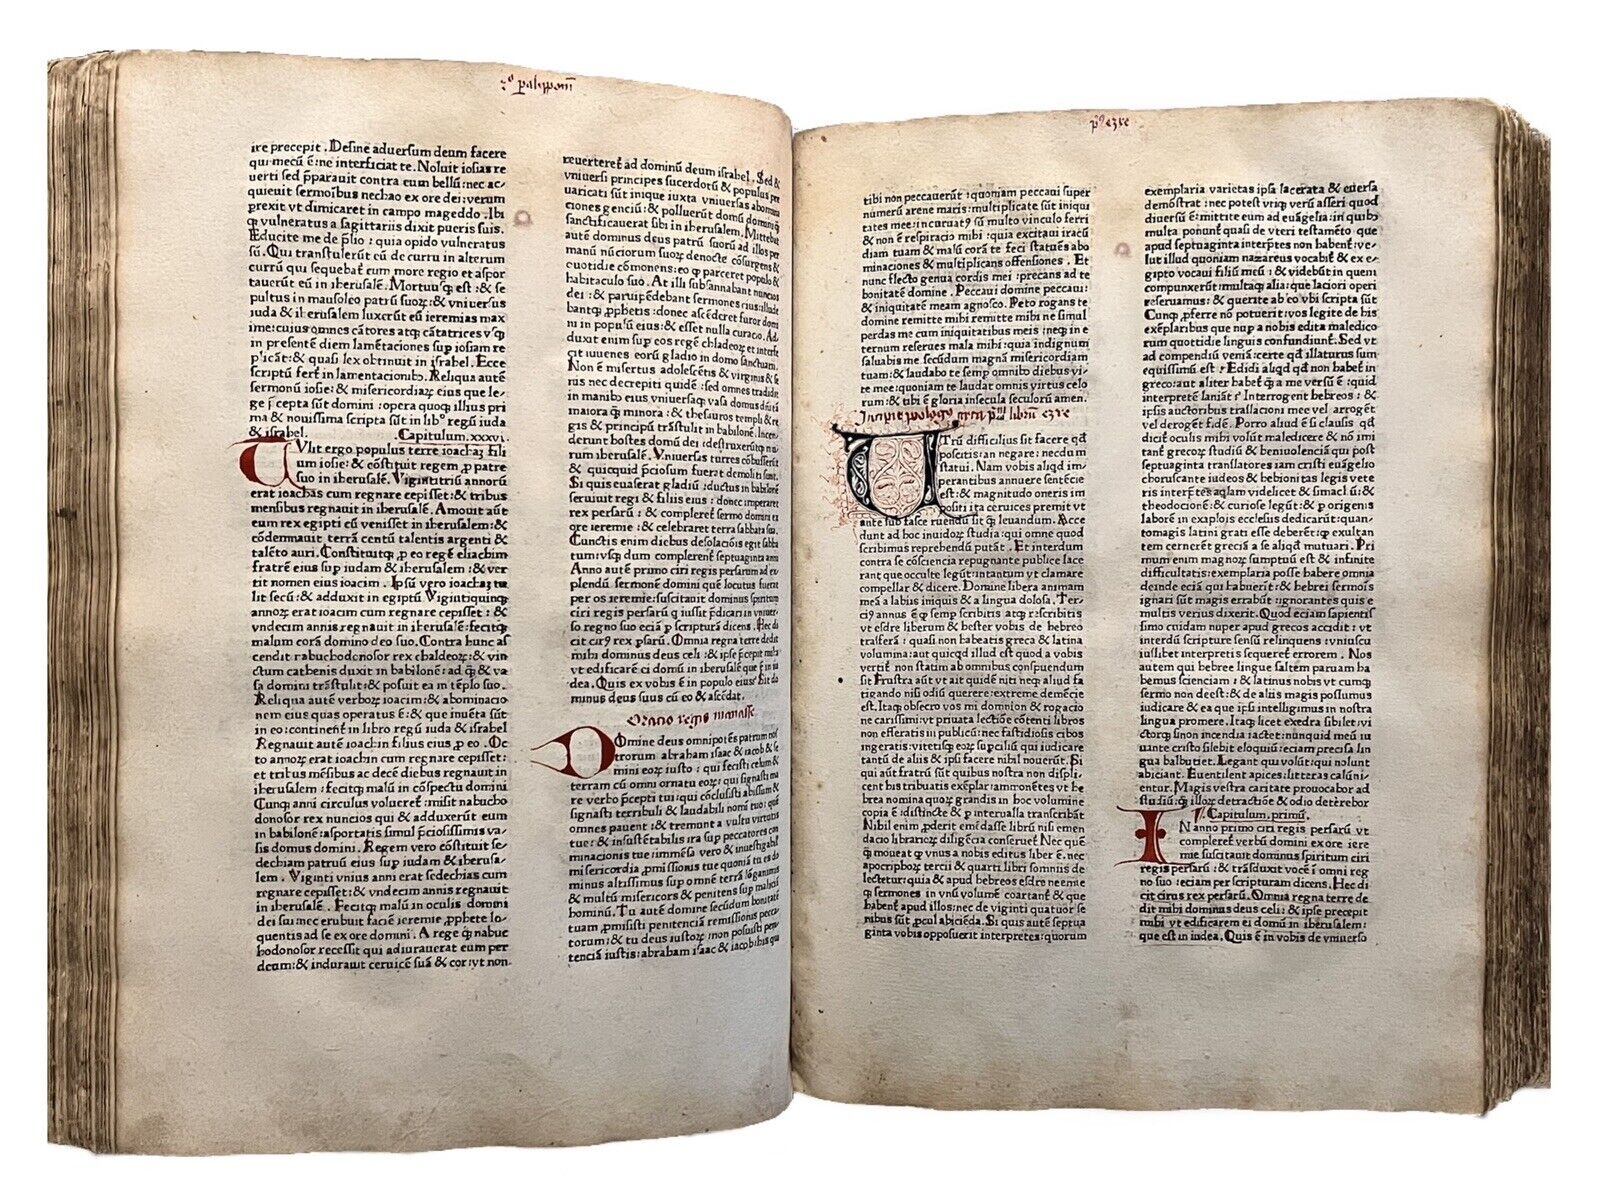 2º paralippomͫ
ire precepit. Desine aduersum deum facere
qui mecū ē: ne interficiat te. Noluit iosias re
uerti sed p̄parauit contra eum bellū: nec ac,
quieuit sermoībus nechao ex ore dei: verum
prexit vt dimicaret in campo mageddo. Ibi
qꝫ vulneratus a sagittariis dixit pueris suis.
Educite me de p̄lio: quia opido vulneratus
sū. Qui transtulerūt eū de curru in alterum
currū qui sequebat̄ eum more regio et aspor
tauerūt eū in iherusalē. Mortuusqꝫ est: & se
pultus in mausoleo patrū suoꝝ: & vniuersus
iuda & iherusalem luxerūt eū ieremias max
ime: cuius omnes cātores atqꝫ cātatrices vsqꝫ
in presentem diem lamētaciones sup iosiam re
p̄licāt: & quasi lex obtinuit in israbel. Ecce
scriptū fert̄ in lamentacionibꝰ. Reliqua autē
sermonū iosie: & misericordiaꝝ eius que le,
ge p̄cepta sūt domini: opera quoqꝫ illius pri
ma & nouissima scripta sūt in libꝰ regū iuda
& israbel. Capitulum. xxxvi.
TVlit ergo populus terre ioachaꝫ fili
um iosie: & cōstituit regem p̱ patre
suo in iherusalē. Vigintitriū annorū
erat ioachas cum regnare cepisset: & tribus
mensibus regnauit in iherusalē. Amouit aut̄
eum rex egipti cū venisset in iherusalem: &
cōdemnauit terrā centū talentis argenti &
talēto auri. Constituitqꝫ p̱ eo regē eliachim
fratrē eius sup iudam & iherusalem: & ver
tit nomen eius ioacim. Ipsū vero ioachaꝫ tu
lit secū: & adduxit in egiptū Vigintiquinqꝫ
annoꝝ erat ioacim cum regnare cepisset: &
vndecim annis regnauit in iherusalem: fecitqꝫ
malum corā domino deo suo. Contra hunc as
cendit nabuchodonosor rex chaldeoꝝ: & vin
ctum cathenis duxit in babilonē: ad qꝫ & va
sa domini trāstulit: & posuit ea in tēplo suo.
Reliqua autē verboꝝ ioacim: & abominacio
nem eius quas operatus ē: & que inuēta sūt
in eo: continent̄ in libro regū iuda & israbel
Regnauit autē ioachin filius eius p̱ eo. Oc
to annoꝝ erat ioachin cum regnare cepisset:
et tribus mēsibus ac decē diebus regnauit in
iherusalem: fecitqꝫ malū in cōspectu domini
Cunqꝫ anni circulus volueret̄: misit nabucho
donosor rex nuncios qui & adduxerūt eum
in babilonē: asportatis simul p̄ciosissimis va,
sis domus domini. Regem vero cōstituit se,
dechiam patruū eius sup iudam & iherusa,
lem. Viginti vnius anni erat sedechias cum
regnare cepisset: & vndecim annis regnauit
in iherusalē. Fecitqꝫ malū in oculis domini
dei sui: nec erubuit faciē ieremie p̱phete lo,
quentis ad se ex ore domini. A rege qꝫ nabuc
hodonosor recessit qui adiurauerat eum per
deum: & indurauit ceruicē suā & cor: vt non
reuerteret̄ ad dominū deum israbel. Sed &
vniuersi principes sacerdotū & populus pre
uaricati sūt inique iuxta vniuersas abomina
ciones genciū: & polluerūt domū domini quā
sanctificauerat sibi in iherusalem. Mittebat
autē dominus deus patrū suorū ad illos per
manū nūciorum suoꝝ denocte cōsurgens &
cotidie cōmonens: eo qꝫ parceret populo &
habitaculo suo. At illi subsannabant nuncios
dei: & paruipēdebant sermones eius: illude
bantqꝫ p̱phetis: donec ascēderet furor domi
ni in populū eius: & esset nulla curacio. Ad
duxit enim sup eos regē chladeoꝝ et interfe
cit iuuenes eorū gladio in domo sanctuarii.
Non ē misertus adolescētis & virginis & se
nis nec decrepiti quidē: sed omnes tradidit
in manibꝰ eius vniuersaqꝫ vasa domus dn̄i tā
maiora qꝫ minora: & thesauros templi & re
gis & principū trāstulit in babilonē. Incen
derunt hostes domū dei: destruxerūtqꝫ mu
rum iherusalē: Vniuersas turres cōbusserūt
& quicquid p̄ciosum fuerat demoliti sunt.
Si quis euaserat gladiū: ductus in babilonē
seruiuit regi & filiis eius: donec imperaret
rex persarū: & compleret̄ sermo domini ex
ore ieremie: & celebraret terra sabbata sua.
Cunctis enim diebus desolaciōis egit sabba
tum: vsqꝫ dum complerent̄ septuaginta anni
Anno autē primo ciri regis persarum ad ex
plendū sermonē domini quē locutus fuerat
per os ieremie: suscitauit dominus spiritum
ciri regis persarū q iussit p̄dicari in vniuer,
so regno suo eciā p̱ scripturā dicens. Hec di
cit cirꝰ rex p̱sarū. Omnia regna terre dedit
mihi dominus deus celi: & ipse p̄cepit mihi
vt edificarē ei domū in iherusalē que ē in iu
dea. Quis ex vobis ē in populo eius? Sit do
minus deus suus cū eo & ascēdat.
Oracio regis manasse
DOmine deus omnipotēs patrum nos
trorum abraham isaac & iacob & se
mini eoꝝ iusto: qui fecisti celum &
terram cū omni ornatu eoꝝ: qui signasti ma
re verbo p̄cepti tui: qui cōclusisti abissum &
signasti terribuli & laudabili nomī tuo: quē
omnes pauent: & tremunt a vultu virtutis
tue: & insustētabilis ira sup peccatores com
minacionis tue: īmēsa vero & inuestigabilis
misericordia p̱missionis tue quoniā tu es do
minus altissimus sup omnē terrā lōganimis
& multū misericors & penitens sup maliciā
hominū. Tu autē domine secūdum bonitatē
tuam p̱misisti penitenciā remissionis pecca
torum: & tu deus iustoꝝ: non posuisti peni
tenciā iustis: abraham isaac & iacob: his qui
pꝰ ezre
tibi non peccauerūt: quoniam peccaui super
numerū arene maris: multiplicate sūt iniqui
tates mee: incuruatꝰ sū multo vinculo ferri
& non ē respiracio mihi: quia excitaui iracū
diam tuam & malū corā te feci statuēs abo
minaciones & multiplicans offensiones. Et
nunc flecto genua cordis mei: precans ad te
bonitatē domine. Peccaui domine peccaui:
& iniquitatē meam agnosco. Peto rogans te
domine remitte mihi remitte mihi ne simul
perdas me cum iniquitatibus meis: neqꝫ in e
ternum reserues mala mihi: quia indignum
saluabis me secūdum magnā misericordiam
tuam: & laudabo te semp omnibus diebus vi
te mee: quoniam te laudat omnis virtus celo
rum: & tibi ē gloria insecula seculorū amen.
Incipit prologꝰ circa pᵐ librū ezre
VTrū difficilius sit facere qđ
poscitis: an negare: necdum
statui. Nam vobis aliqđ im
perantibus annuere sentēcie
est: & magnitudo oneris im
positi ita ceruices premit vt
ante sub fasce ruendū sit qꝫ leuandum. Acce
dunt ad hoc inuidoꝝ studia: qui omne quod
scribimus reprehendū putāt. Et interdum
contra se cōsciencia repugnante publice lace
rant que occulte legūt: intantum vt clamare
compellar & dicere. Domine libera animam
meā a labiis iniquis & a lingua dolosa. Ter,
ciꝰ annus ē q semp scribitis atqꝫ rescribitis
vt esdre librum & hester vobis de hebreo
trāsferā: quasi non habeatis greca & latina
volumina: aut quicqđ illud est quod a vobis
vertit̄ non statim ab omnibus conspuendum
sit Frustra aūt vt ait quidē niti neqꝫ aliud fa
tigando nisi odiū querere: extreme demēcie
est. Itaqꝫ obsecro vos mi domnion & rogacio
ne carissimi: vt priuata lectiōe cōtenti libros
non efferatis in publicū: nec fastidiosis cibos
ingeratis: vitetisqꝫ eoꝝ supciliū qui iudicare
tantū de aliis & ipsi facere nihil nouerūt. Si
qui aūt fratrū sūt quibus nostra non displi,
cent his tribuatis exēplar: ammonētes vt he
brea nomina quoꝝ grandis in hoc volumine
copia ē: distincte & p̱ interualla transcribāt
Nihil enim p̱derit emēdasse librū nisi emen
dacio librarioꝝ diligēcia conseruet̄ Nec quē
qꝫ moueat qꝫ vnus a nobis editus liber ē: nec
apocriphoꝝ tercii & quarti libri somniis de
lectetur: quia & apud hebreos esdre neemie
qꝫ sermones in vnū volumē coartant̄ & que
non habent̄ apud illos: nec de viginti quatuor se
nibus sūt p̱cul abiciēda. Si quis autē septua
ginta vobis opposuerit interpretes: quorum
exemplaria varietas ipsa lacerata & euersa
demōstrat: nec potest vtiqꝫ verū asseri quod
diuersū ē: mittite eum ad euāgelia: in quibꝰ
multa ponunt̄ quasi de vteri testamēto que
apud septuaginta interp̄tes non habent̄: ve,
lut illud quoniam nazareus vocabit̄ & ex e,
gipto vocaui filiū meū: & videbūt in quem
compunxerūt: multaqꝫ alia: que laciori operi
reseruamus: & querite ab eo vbi scripta sūt
Cunqꝫ p̱ferre nō potuerit: vos legite de his
exēplaribus que nup a nobis edita maledico
rum quottidie linguis confundiunt̄. Sed vt
ad compendiū veniā: certe qđ illaturus sum
equissimū est: Edidi aliqđ qđ non habet̄ in
greco: aut aliter habet̄ qꝫ a me versū ē: quid
interpretē laniāt? Interrogent hebreos: &
ipsis auctoribus traslacioni mee vel arrogēt
vel derogēt fidē. Porro aliud ē si clausis qđ
dicit̄ oculis mihi volūt maledicere & nō imi
tant̄ grecoꝝ studiū & beniuolenciā qui post
septuaginta translatores iam cristi euāgelio
choruscante iudeos & hebionitas legis vete
ris interp̄tes aqlam videlicet & simaclū: &
theodocionē: & curiose legūt: & p̱ origenis
laborē in exaplois ecclesiis dedicarūt: quan,
tomagis latini grati esse deberēt: qꝫ exultan
tem cernerēt greciā a se aliqđ mutuari. Pri
mum enim magnoꝝ sumptuū est & infinite
difficultatis: exemplaria posse habere omnia
dehinde eciā qui habuerīt: & hebrei sermōis
ignari sūt magis errabūt: ignorantes quis e
multis verius dixerit. Quod eciam sapientis
simo cuidam nuper apud grecos accidit: vt
interdū scripture sensū relinquens: vniuscu
iuslibet interpretis sequeret̄ errorem. Nos
autem qui hebree lingue saltem paruam ha
bemus scienciam: & latinus nobis vt cumqꝫ
sermo non deest: & de aliis magis possumus
iudicare & ea que ipsi intelligimus in nostra
lingua promere. Itaqꝫ licet exedra sibilet: vi
ctorqꝫ sinon incendia iactet: nunquid meū iu
uante cristo silebit eloquiū: eciam precisa lin
gua balbutiet. Legant qui volūt: qui nolunt
abiciant. Euentilent apices: litteras calūni,
entur. Magis vestra caritate prouocabor ad
studiū: qꝫ illoꝝ detractiōe & odio deterebor
Capitulum. primū.
IN anno primo ciri regis persarū vt
compleret̄ verbū domini ex ore iere
mie suscitauit dominus spiritum ciri
regis persarū: & trāsduxit vocē ī omni reg
no suo: eciam per scripturam dicens. Hec di
cit cirus rex persarū. Omnia regna terre de
dit mihi dominus deus celi: & ipse precepit
mihi vt edificarem ei domū in iherusalem:
que est in iudea. Quis ē in vobis de vniuerso